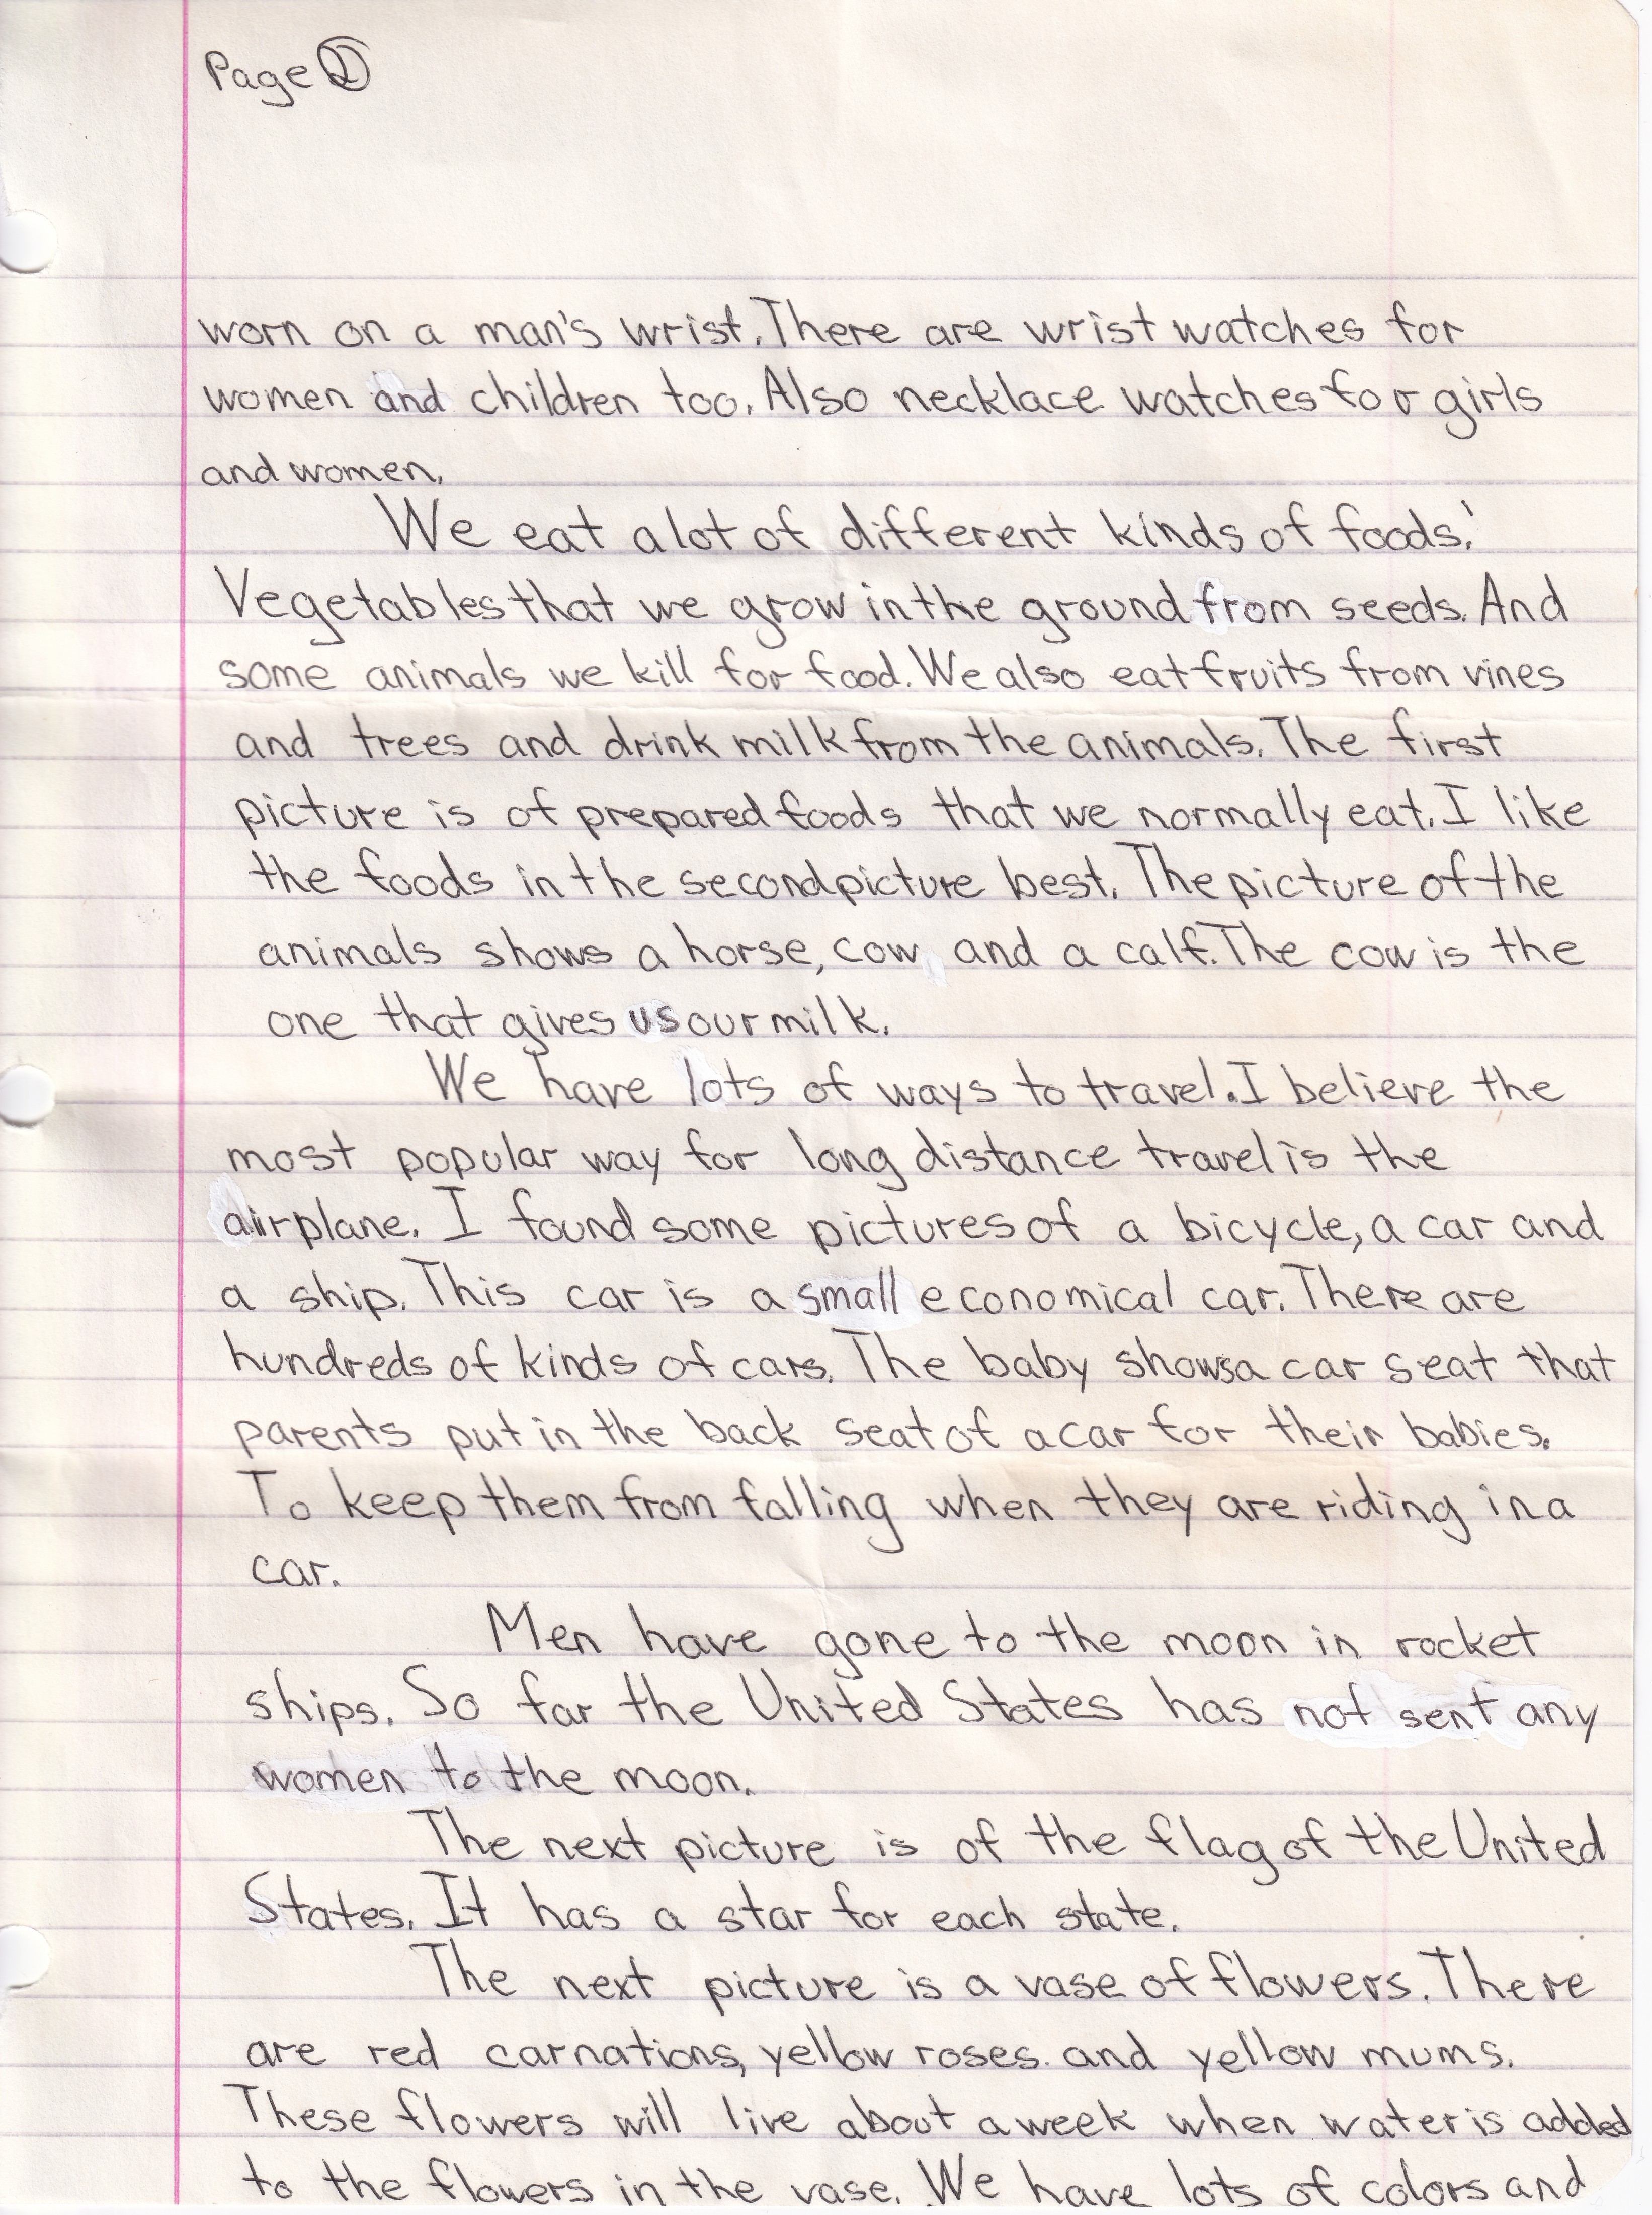 Page 2
worn on a man's wrist. There are wrist watches for
women and children too. Also necklace watches for girls
and women.
We eat a lot of different kinds of foods.
Vegetables that we grow in the ground from seeds. And
some animals we kill for food. We also eat fruits from vines
and trees and drink milk from the animals. The first
picture is of prepared foods that we normally eat. I like
the foods in the second picture best. The picture of the
animals shows a horse, cow and a calf. The cow is the
one that gives us our milk.
We have lots of ways to travel. I believe the
most popular way for long distance travel is the
airplane. I found some pictures of a bicycle, a car and
a ship. This car is a small economical car. There are
hundreds of kinds of cars. The baby shows a car seat that
parents put in the back seat of a car for their babies.
To keep them from falling when they are riding in a
car.
Men have gone to the moon in rocket
ships. So far the United States has not sent any
women to the moon.
The next picture is of the flag of the United
States. It has a star for each state.
The next picture is a vase of flowers. There
are red carnations, yellow roses. and yellow mums.
These flowers will live about a week when water is added
to the flowers in the vase. We have lots of colors and